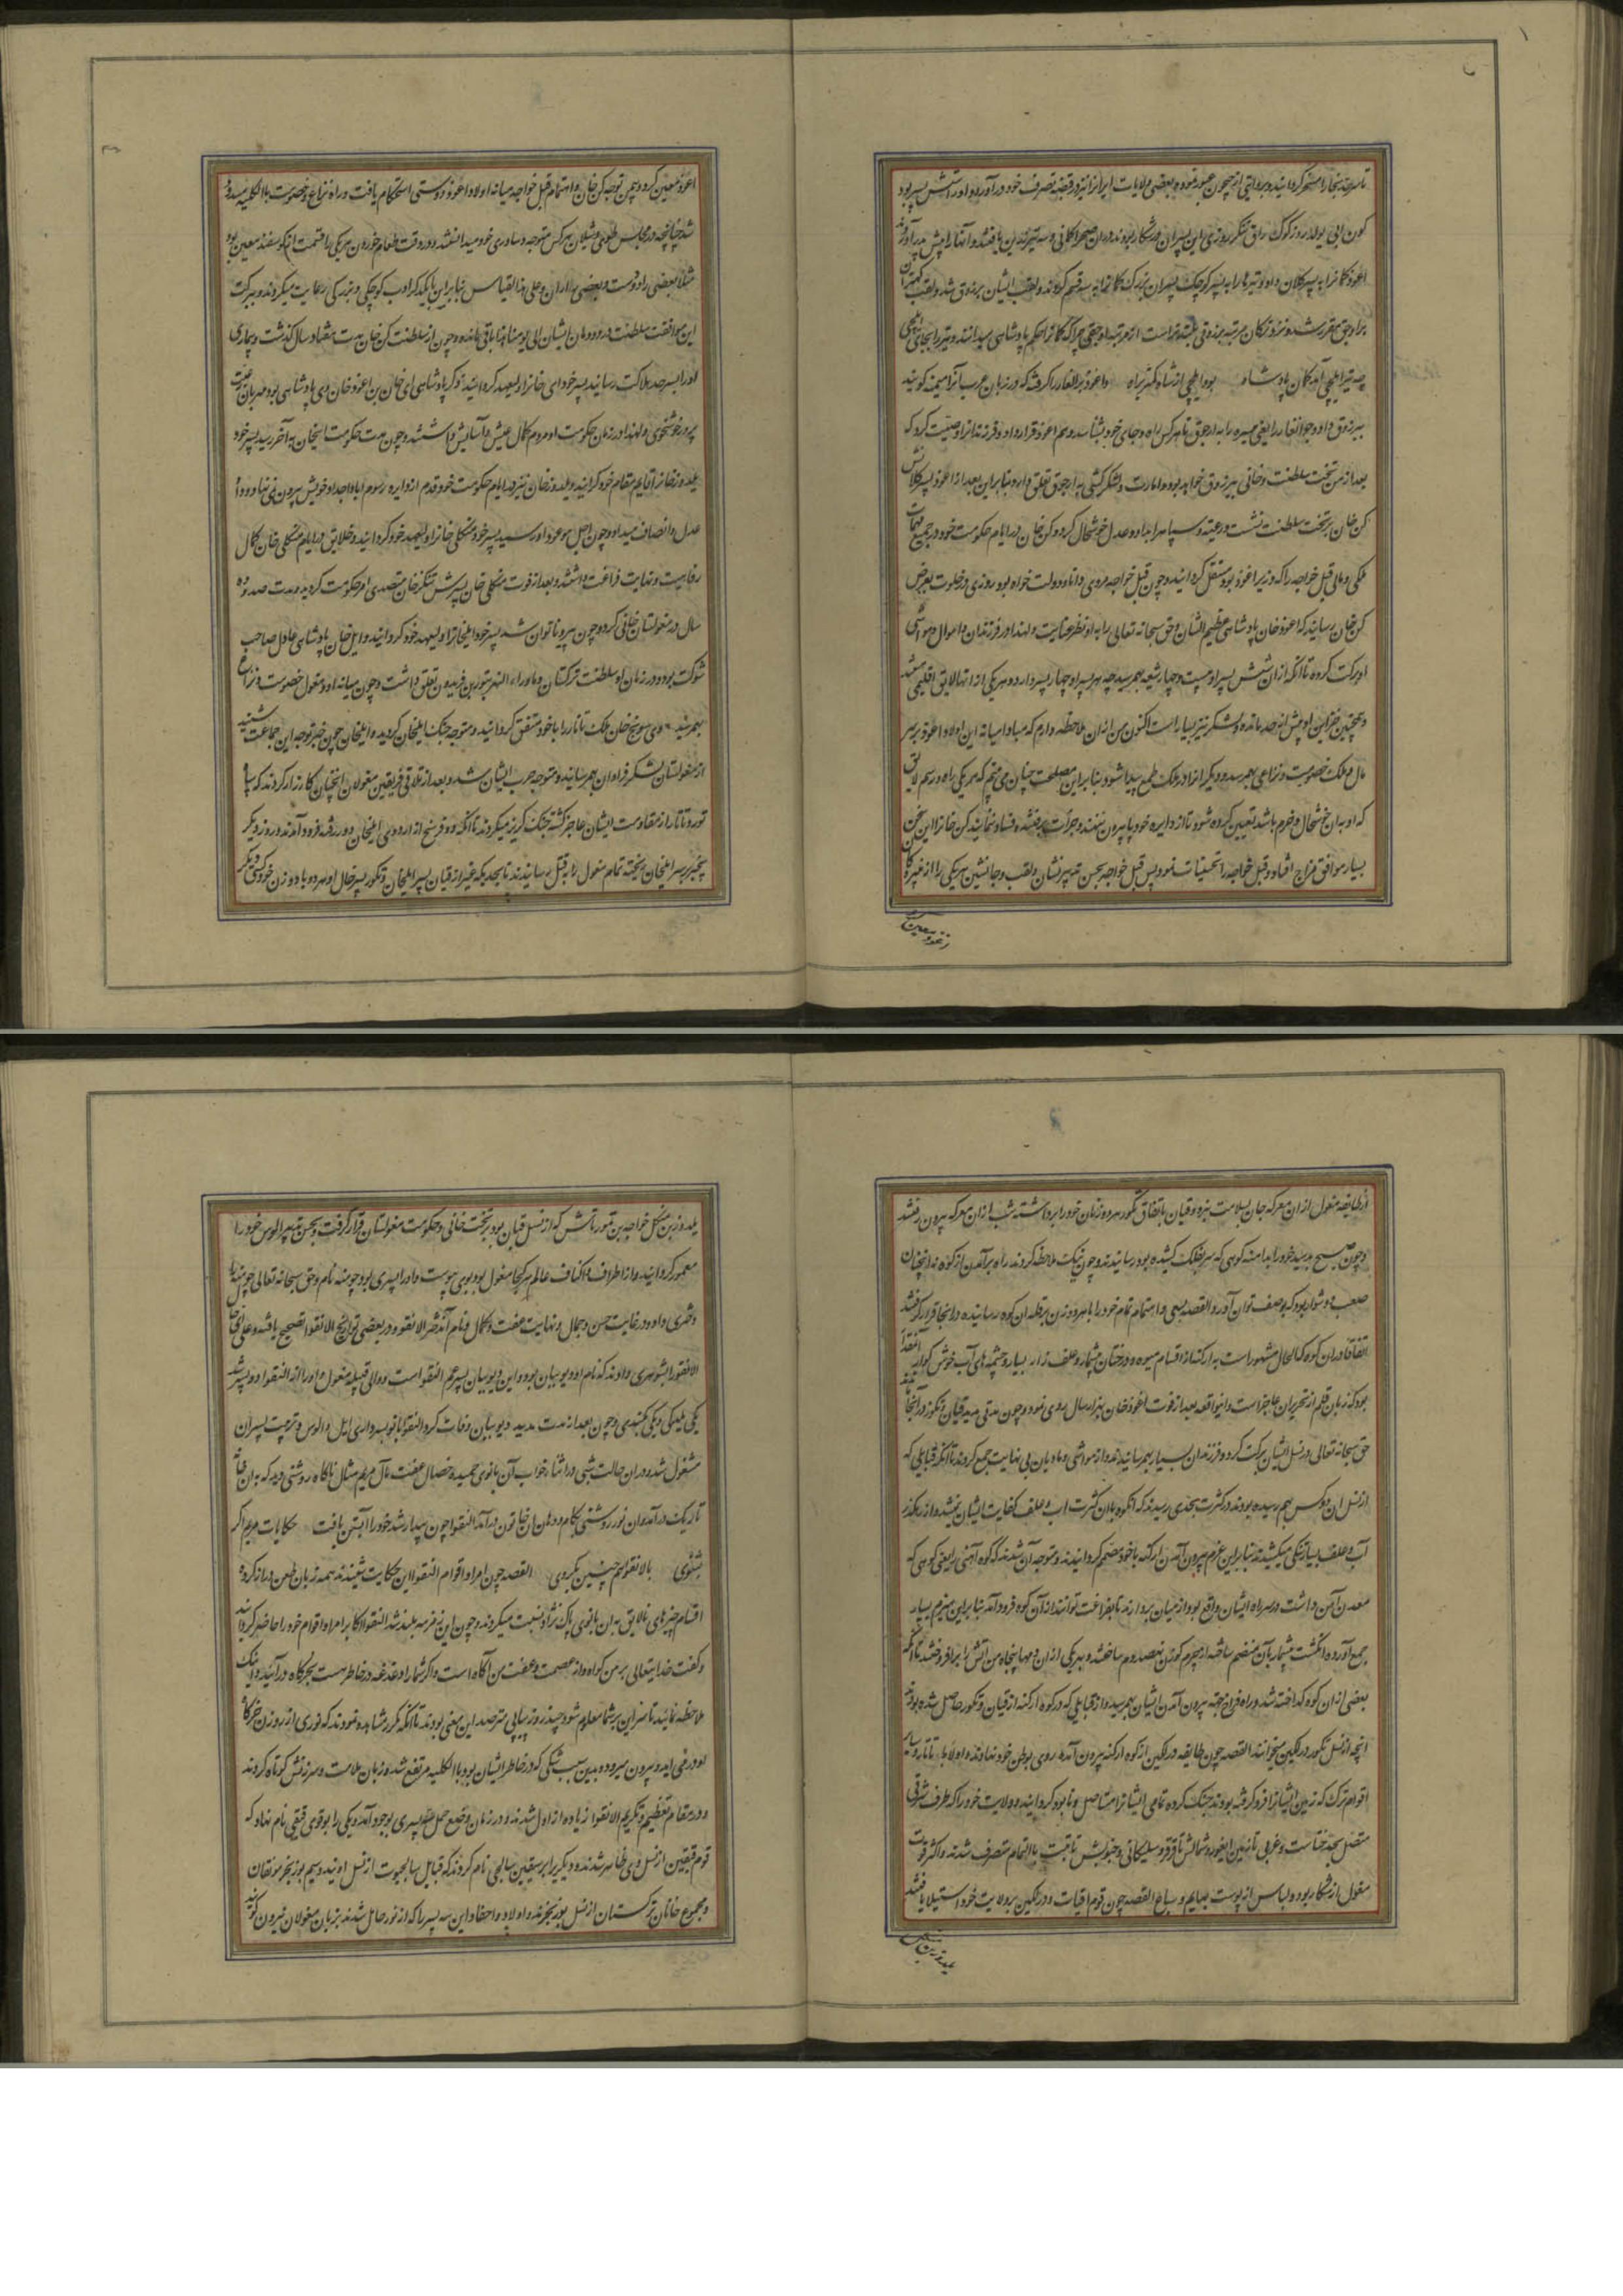 تا سرحد بخارا مسخر کردانید و بروایتی از جیحون عبور نموده بعضی ولایات ایرانرا نیز در قبضه تصرف خود درآورد و او را شش پسر بود
کون آی یولدوز کوک طاق تنکز روزی این پسران در شکار بودند در ان صحرا کمانی و سه تیر زرین یافتند و آنها را پیش پدر آوردند
اغوز کمانرا به پسر کلان داد و تیرها را به پسر کوچک پسران بزرک کمانرا به سه قسم کردند و لقب ایشان بزوق شد و لقب کهتران
براوجق مقرر شد و نزد ترکان مرتبه بزوق بلندتر است از مرتبه اوجق چرا که کمانرا حکم پادشاهی میدانند و تیر را بجای ایلچی
چه تیر ایلچی آمد کمان پادشاه بود ایلچی از شاه کمتر براه و اغوز برانغار را کرفت که در زبان عرب آنرا میمنه کویند
ببزوق داد و جوانغار را یعنی میسره را به اوجوق تا هر کس راه و جای خود بشناسد و هم اغوز قرار داد و فرزندانرا وصیت کرد که
بعد از من تخت سلطنت و خانی ببزوق خواهد بود و امارت و لشکرکشی به اوجوق تعلق دارد بنابراین بعد از اغوز پسر کلانش
کن خان بر تخت سلطنت نشست و رعیت و سپاه را بداد و عدل خوشحال کرد و کن خان در ایام حکومت خود در جمیع مهمات
ملکی و مالی قبل خواجه را که وزیر اغوز بود مستقل کردانید و چون قبل خواجه مردی دانا و دولت خواه بود روزی در خلوت بعرض
کن خان رسانید که اغوز خان پادشاهی عظیم الشان و حق سبحانه تعالی را به او نظر عنایت و لهذا در فرزندان و اموال و مواشی
او برکت کرده تا آنکه از ان شش پسر او بیست و چهار شعبه بهم رسید چه هر پسر او چهار پسر دارد و هر یکی از انها لایق اقلیمی هستند
و همچنین خزاین او بیش از حد مانده و لشکر نیز بسیار است اکنون من از ان ملاحظه دارم که مبادا میانه این اولاد اغوز بر سر
مال و ملک خصومت و نزاعی بهم رسد و دیکرانرا در ملک طمع پیدا شود بنابراین مصلحت چنان می بینم که هر یکی راه و رسم لایق
که او به ان خوشحال و خرم باشد تعیین کرده شود تا از دایره خود پا بیرون ننهند و جرأت بر فتنه و فساد ننمایند کن خانرا این سخن
بسیار موافق مزاج افتاد و قبل خواجه را تحسینات نمود پس قبل خواجه بحسن تدبیر نشان و لقب و جانشین هر یکی را از غیر کان
اغوز معین کرد و بیمن توجه کن خان و اهتمام قبل خواجه میانه اولاد اغوز دوستی استحکام یافت و راه نزاع و خصومت باالکلیه مسدود
شد چنانچه در مجالس طوی و شیلان هر کس متوجه و ساوری خود میدانستند و در وقت طعام خوردن هر یکی را قسمت از کوسفند معین بود
مثلا بعضی را دوست و بعضی را ران و علی هذا القیاس بنابراین یکدیکر ادب کوچکی و بزرکی رعایت میکردند و ببرکت
این موافقت سلطنت در دودمان ایشان الی یومنا هذا باقی مانده و چون از سلطنت کن خان مدت هفتاد سال کذشت و بیماری
او را بسرحد هلاکت رسانید پسر خود آی خانرا ولیعهد کردانید ذکر پادشاهی آی خان بن اغوز خان وی پادشاهی بود مهربان رعیت
پرور خوشخوی و لهذا در زمان حکومت او مردم کمال عیش و آسایش داشتند و چون مدت حکومت ایخان به آخر رسید پسر خود
یلدوز خانرا قایم مقام خود کردانید و یلدوز خان نیز در ایام حکومت خود قدم از دایره رسوم اباء و اجداد خویش بیرون نمی نهاد و داد
عدل و انصاف میداد و چون اجل موعود او رسید پسر خود منکلی خانرا ولیعهد خود کردانید و خلایق در ایام منکلی خان کمال
رفاهیت و نهایت فراغت داشتند و بعد از فوت منکلی خان پسرش تنکز خان متصدی امر حکومت کردید و مدت صد و ده
سال در مغولستان خانی کرد و چون پیر و ناتوان شد پسر خود ایلخانرا ولیعهد خود کردانید و ایل خان پادشاهی عادل صاحب
شوکت بود و در زمان او سلطنت ترکستان و ماوراء النهر بتور بن فریدون تعلق داشت و چون میانه او و مغول خصومت و نزاع
بهم رسید وی سونج خان ملک تاتار را با خود متفق کردانید و متوجه جنک ایلخان کردید و ایلخان چون خبر توجه این جماعت شنید
از مغولستان لشکر فراوان بهم رسانید و متوجه حرب ایشان شد و بعد از تلاقی فریقین مغولان انچنان کارزار کردند که سپاه
تور و تاتار از مقاومت ایشان عاجز کشته جنک کریز میکردند تا آنکه دو فرسنخ از اردوی ایلخان دور رفته فرود آمدند و روز دیکر
بیخبر بر سر ایلخان ریخته تمام مغول را بقتل رسانیدند تا بحدیکه غیر از قیان پسر ایلخان و تکوز پسر خال او هر دو با دو زن خود کسی دیکر
از طایفه مغول از ان معرکه جان بسلامت نبرد و قیان باتفاق تکوز هر دو زنان خود را برداشته شب از ان معرکه بیرون رفتند
و چون صبح بدمید خود را بدامنه کوهی که سر بفلک کشیده بود رسانیدند و چون نیک ملاحظه کردند راه برآمدن از کوه نه انچنان
صعب و دشوار بود که بوصف توان آورد القصه بسعی و اهتمام تمام خود را با هر دو زن بر قله ان کوه رسانیده در انجا قرار کرفتند
اتفاقا در ان کوه که الحال مشهور است به ارکنه از اقسام میوه و درختان بیشمار و علف زار بسیار و چشمه های آب خوش کوار آنقدر
بود که زبان قلم از تحریر ان عاجز است و اینواقعه بعد از فوت اغوز خان بهزار سال روی نمود و چون مدتی مدید قیان و تکوز در آنجا ماندند
حق سبحانه تعالی در نسل ایشان برکت کرد و فرزندان بسیار بهم رسانیدند و از مواشی و مادیان بی نهایت جمع کردند تا آنکه قبایلی که
از نسل ان دو کس بهم رسیده بودند در کثرت بحدی رسیدند که انکوه با ان کثرت آب و علف کفایت ایشان نمیشد و از رهکذر
آب و علف بسیار تنکی میکشیدند بنابراین عزم بیرون آمدن از ارکنه با خود مصمم کردانیدند و متوجه آن شدند که کوه آهنی را یعنی کوهی که
معدن آهن داشت و در سر راه ایشان واقع بود از میان بردارند تا بفراغت توانند از آن کوه فرود آمد بنابراین هیزم بسیار
جمع آورده انکشت بیشمار بآن منضم ساخته از چرم کوزن نهصد دم ساختند و بهر یکی از ان دمها پنجاه من آتش را برافروختند تا آنکه
بعضی از ان کوه کداخته شد و راه فراخ جهته بیرون آمدن ایشان بهم رسید و از قبایلی که در کوه ارکنه از قیان و تکوز حاصل شده بودند
انچه از نسل تکوز درلکین میخوانند القصه چون طایفه درلکین از کوه ارکنه بیرون آمده روی بوطن خود نهادند و اولا با تاتار و سایر
اقوام ترک که زمین ایشانرا فرو کرفته بودند جنک کرده تمامی ایشانرا مستاصل و نابود کردانیدند و ولایت خود را که طرف شرقی
متصل بحد ختاست و غربی تا زمین ایغور و شمالش تا قرقز و سلیکائی و جنوبش تا تبت باالتمام متصرف شدند و اکثر قوت
مغول از شکار بود و لباس از پوست بهایم و سباع القصه چون قوم قیات و درلکین بر ولایت خود استیلا یافتند
یلدوز بن منکلی خواجه بن تمورتاش که از نسل قیان بود بر تخت خانی و حکومت مغولستان قرار کرفت و بحسن تدبیر الوس خود را
معمور کردانید و از اطراف و اکناف عالم هر کجا مغول بود بوی پیوست و او را پسری بود جوینه نام و حق سبحانه تعالی جوینه را
دختری داد در غایت حسن و جمال و نهایت عفت و کمال و نام آن دختر الانقوا و در بعضی تواریخ الانقوا تصحیح یافته و علی ای حال
الانقوا را بشوهری دادند که نام او دیوبیان بود و این دیوبیان پسر عم النقوا است و والی قبیله مغول و او را از النقوا دو پسر شد
یکی بلیکی و یکی بکندی و چون بعد از مدت مدید دیوبیان وفات کرد النقوا بانو بسرداری ایل و الوس و تربیت پسران
مشغول شد و در ان حالت شبی در اثناء خواب آن بانوی حمیده خصال عفت مآل مریم مثال ناکاه روشنی دید که به ان خانه
تاریک درآمد و ان نور روشنی بکام و دهان ان خاتون درآمد النقوا چون بیدار شد خود را آبستن یافت حکایات مریم اکر
بشنوی بالانقوا هم چنین بکروی القصه چون امرا و اقوام النقوا این حکایت شنیدند همه زبان طعن دراز کردند
اقسام چیزهای نالایق به ان بانوی پاک نژاد نسبت میکردند و چون این زمزمه بلند شد النقوا اکابر امرا و اقوام خود را حاضر کردانید
و کفت خدایتعالی بر من کواه و از عصمت و عفت من آکاه است و اکر شما را دغدغه در خاطر هست بخرکاه درآیند و اینک
ملاحظه نمائید تا سر این بر شما معلوم شود چند روز پیاپی مترصد این معنی بودند تا آنکه مکرر مشاهده نمودند که نوری از روزن خرکاه
او درمی آید و بیرون میرود و بدین سبب شکی که در خاطر ایشان بود باالکلیه مرتفع شد و زبان ملامت و سرزنش کوتاه کردند
و در مقام تعظیم و تکریم الانقوا زیاده از اول شدند و در زمان وضع حمل سه پسری بوجود آمد و یکی را بوقوی قیقی نام نهاد که
قوم قیقین از نسل وی ظاهر شدند و دیکریرا برسیقین سالجی نام کردند که قبایل سالجیوت از نسل اویند و سیم بوزنجر مونقان
و مجموع خانان ترکستان از نسل بوزنجرند و اولاد و احفاد این سه پسر را که از نور حاصل شدند بزبان مغولان نیرون کویند